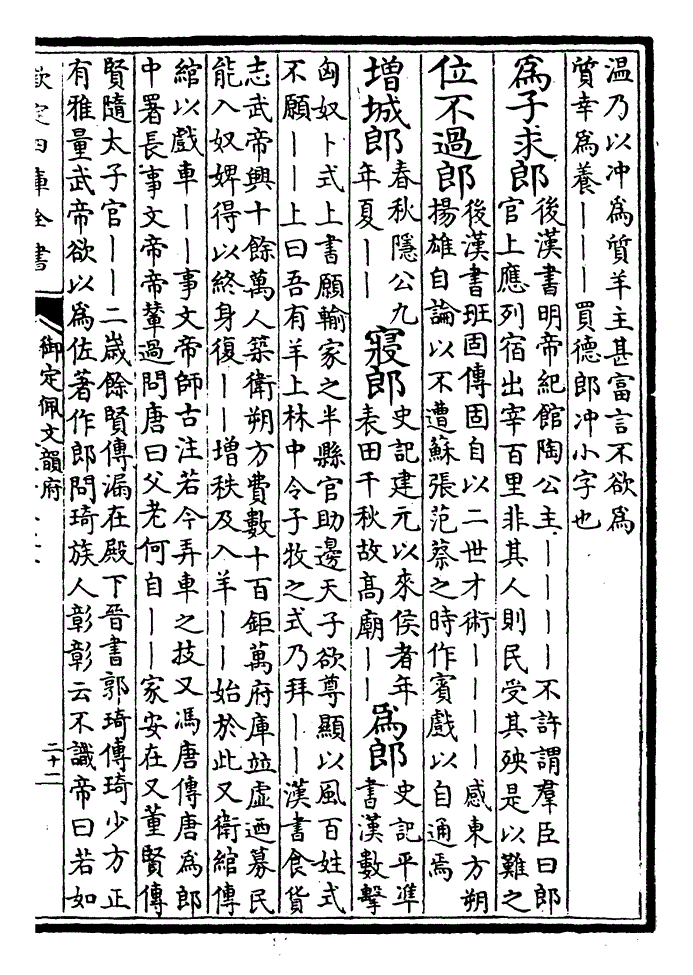 温乃以冲爲質羊主甚富言不欲爲
質幸爲養丨丨丨買德郎冲小字也
爲子求郎
後漢書明帝紀館陶公主丨丨丨丨不許謂羣臣曰郎
官上應列宿出宰百里非其人則民受其殃是以難之
位不過郎
後漢書班固傳固自以二世才術丨丨丨丨感東方朔
揚雄自論以不遭蘇張范蔡之時作賓戲以自通焉
增城郎
春秋隱公九
年夏丨丨
寢郎
史記建元以來侯者年
表田千秋故高廟丨丨
爲郎
史記平準
書漢數擊
匈奴卜式上書願輸家之半縣官助邊天子欲尊顯以風百姓式
不願丨丨上曰吾有羊上林中令子牧之式乃拜丨丨漢書食貨
志武帝興十餘萬人築衛朔方費數十百鉅萬府庫竝虛迺募民
能入奴婢得以終身復丨丨增秩及入羊丨丨始於此又衛綰傳
綰以戲車丨丨事文帝師古注若今弄車之技又馮唐傳唐爲郎
中署長事文帝帝輦過問唐曰父老何自丨丨家安在又董賢傳
賢隨太子官丨丨二歲餘賢傳漏在殿下晉書郭琦傳琦少方正
有雅量武帝欲以爲佐著作郎問琦族人彰彰云不識帝曰若如
欽定四庫全書
御定佩文韻府
二十二